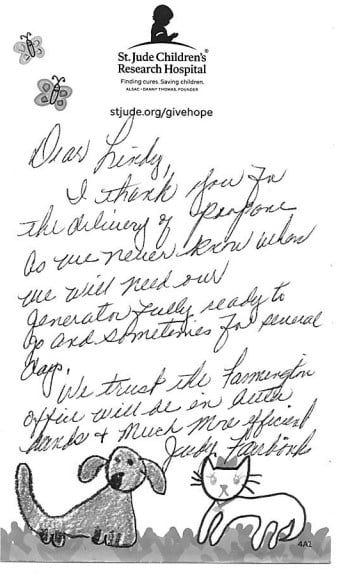 St. Jude Children's®
Research Hospital
Finding cures. Saving children.
ALSAC • DANNY THOMAS, FOUNDER
stjude.org/givehope
Dear Lindy,
I thank you for
the delivery of propane
as we never know when
we will need our
generator fully ready to
go and sometimes for several
days.
We trust the Farmington
office will be in better
hands + much more efficient
Judy Fairbanks
4A2